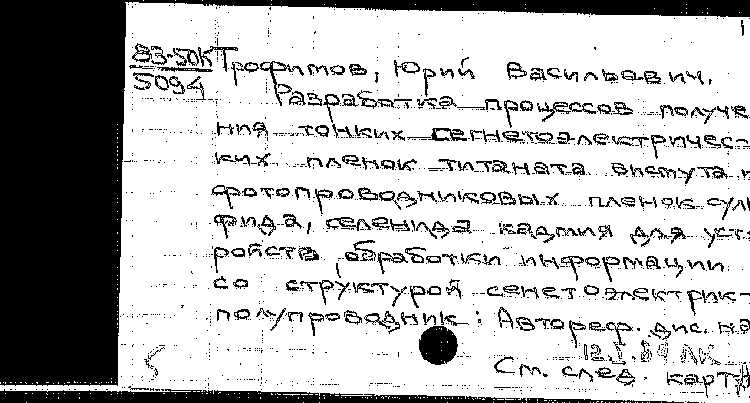 83-50К
5094
Трофимов, Юрий Васильевич.
Разработка процессов получе-
ния тонких сегнетоэлектричес-
ких пленок титаната висмута и
фотопроводниковых пленок суль
фида, селенида кадмия для уст
ройств обработки информации
со структурой сенетоэлектрик-
полупроводник: Автореф. дис. на
См. след. карт